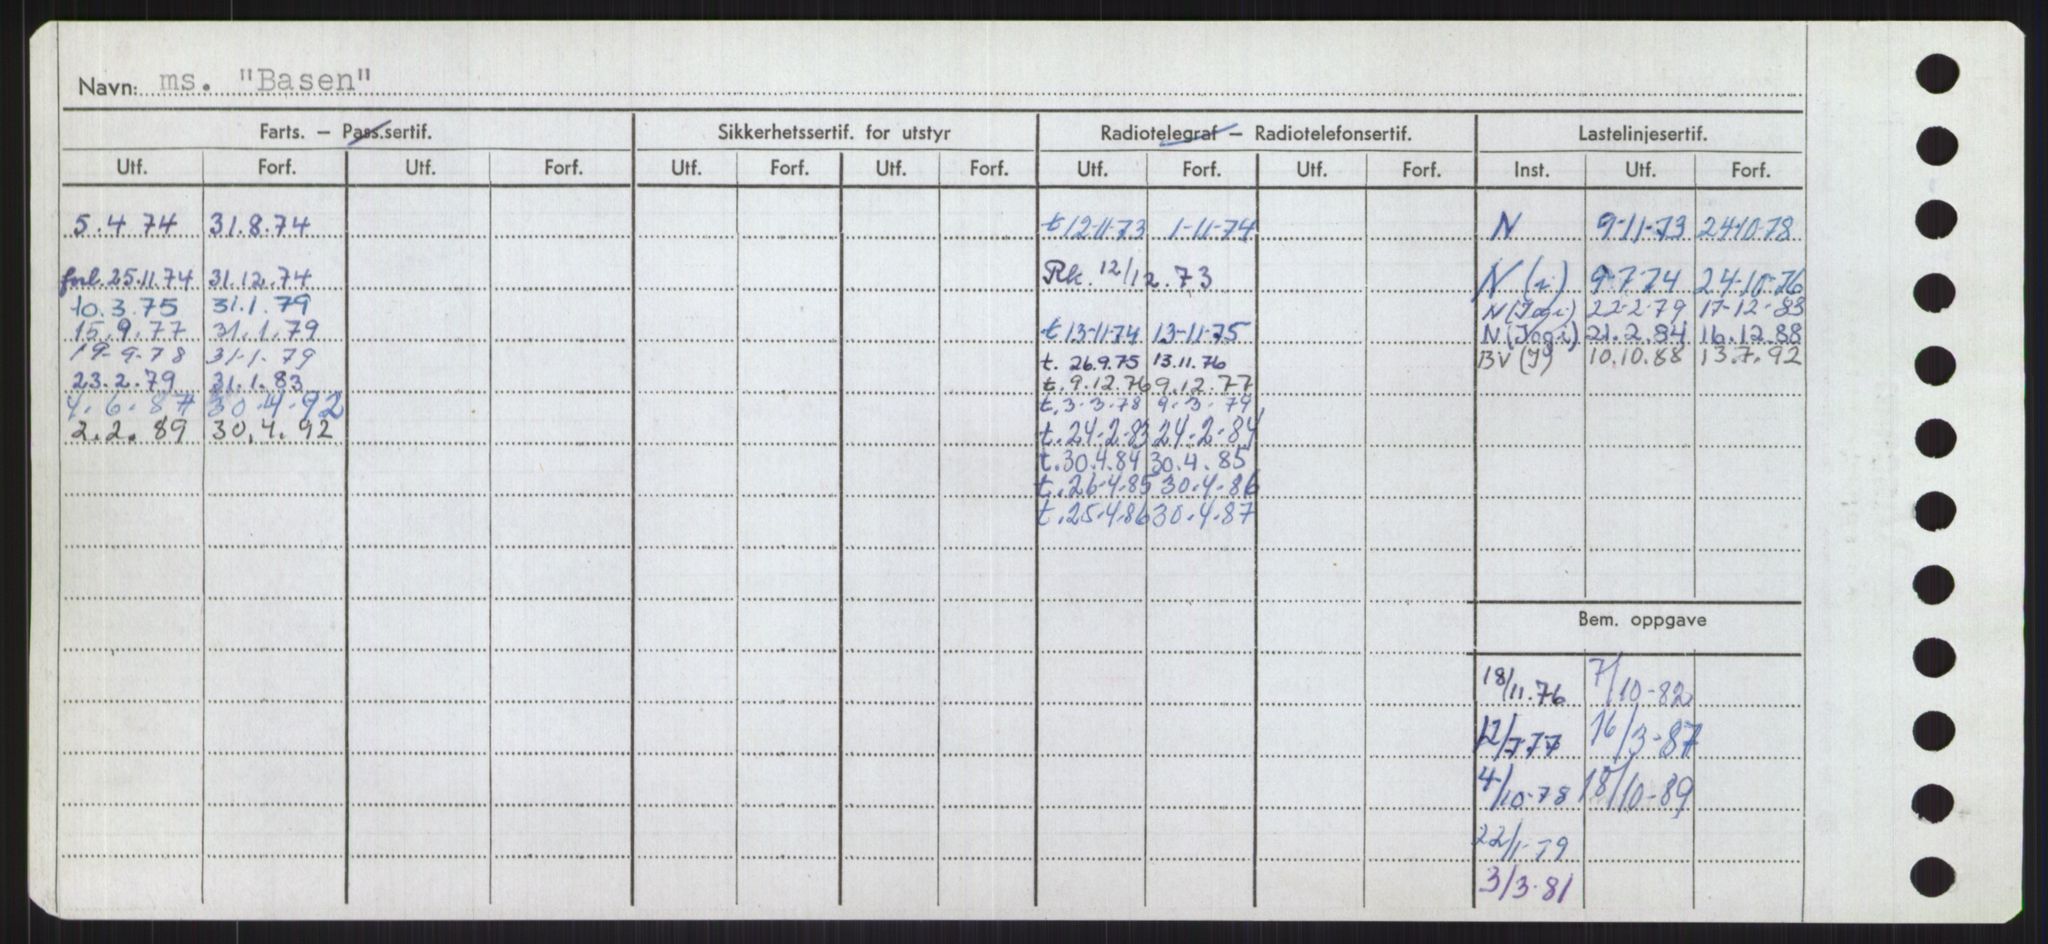 Navn: ms. "Basen"
Farts. – Pass.sertif. Sikkerhetssertif. for utstyr Radiotelegraf – Radiotelefonsertif. Lastelinjesertif.
Utf. Forf. Utf. Forf. Utf. Forf. Utf. Forf. Utf. Forf. Utf. Forf. Inst. Utf. Forf.
5.4.74 31.8.74 t 12-11-73 1-11-74 N 9-11-73 24-10-78
forl. 25.11.74 31.12.74 Rk. 12/12.73 N (i) 9-7-74 24-10-76
10.3.75 31.1.79 N (Jogi) 22-2-79 17-12-83
15.9.77 31.1.79 t 13-11-74 13-11-75 N (Jogi) 21.2.84 16.12.88
19-9-78 31-1-79 t. 26.9.75 13.11.76 BV (J) 10.10.88 13.7.92
23.2.79 31.1.83 t. 9.12.76 9.12.77
4.6.87 30.4.92 t. 3-3-78 9-3-79
2.2.89 30.4.92 t. 24-2-83 24-2-84
t. 30.4.84 30.4.85
t. 26-4-85 30-4-86
t. 25-4-86 30-4-87
Bem. oppgave
18/11.76 7/10-82
12/7.77 16/3-87
4/10-78 18/10-89
22/1-79
3/3-81